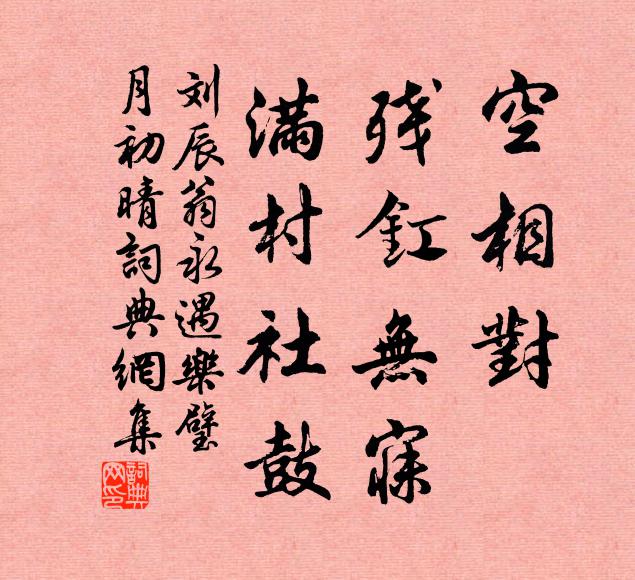 空相對
残釭無寐
满村社鼓
刘辰翁永遇樂璧
月初晴詞典網集
詞典网印